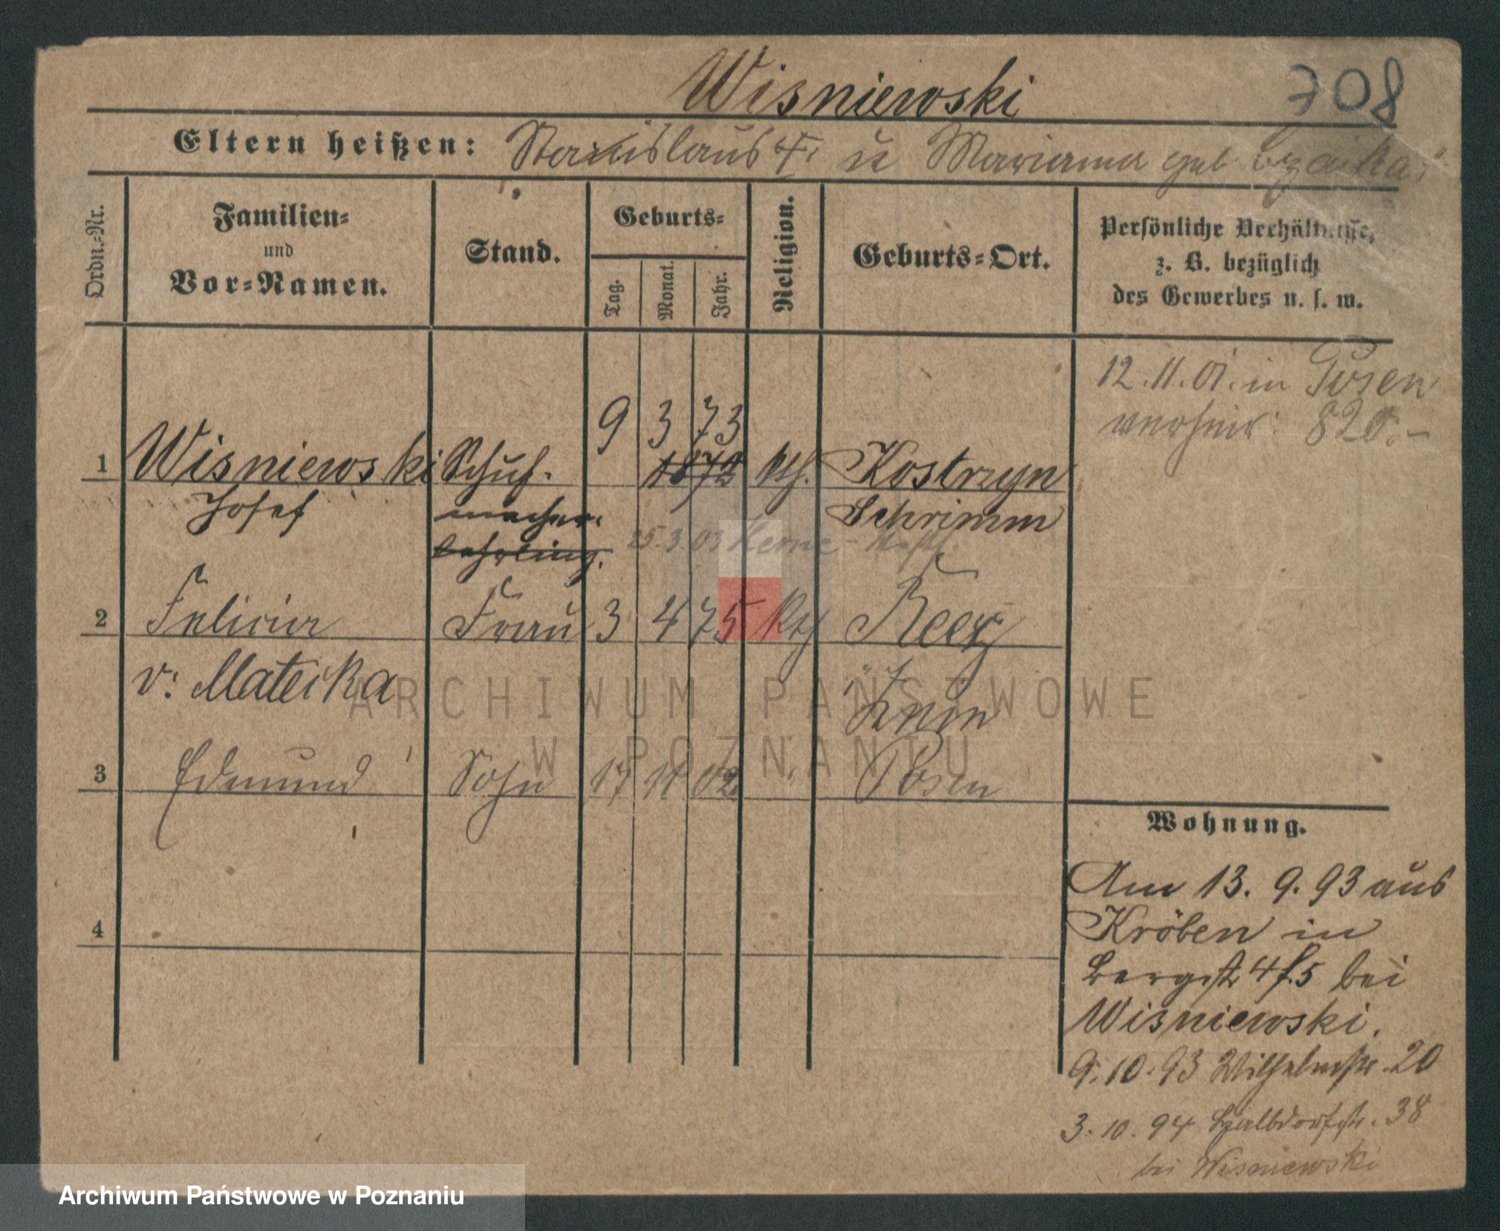 Wisniewski
708
Eltern heißen: Stanislaus u Marianna geb
Ordn.-Nr.
Familien-
und
Vor-Namen.
Stand.
Geburts-
Tag.
Monat.
Jahr.
Religion.
Geburts-Ort.
Persönliche Verhältnisse,
z. B. bezüglich
des Gewerbes u. s. w.
12.11.01. in Posen
verheir: 820.-
9 3 73
1 Wisniewski Schuh- 1872 kth. Kostrzyn
Josef macher Schrimm
lehrling. 25.3.03 Herne
2 Felicia Frau 3 4 75 kth
v: Mateċka Znin
3 Edmund Sohn 17 11 02 " Posen
4
Wohnung.
Am 13. 9. 93 aus
Kröben in
Bergstr 4 f. 5 bei
Wisniewski.
9. 10. 93 Wilhelmstr. 20
3. 10. 94 Halbdorfstr. 38
bei Wisniewski
ARCHIWUM PAŃSTWOWE
W POZNANIU
Archiwum Państwowe w Poznaniu